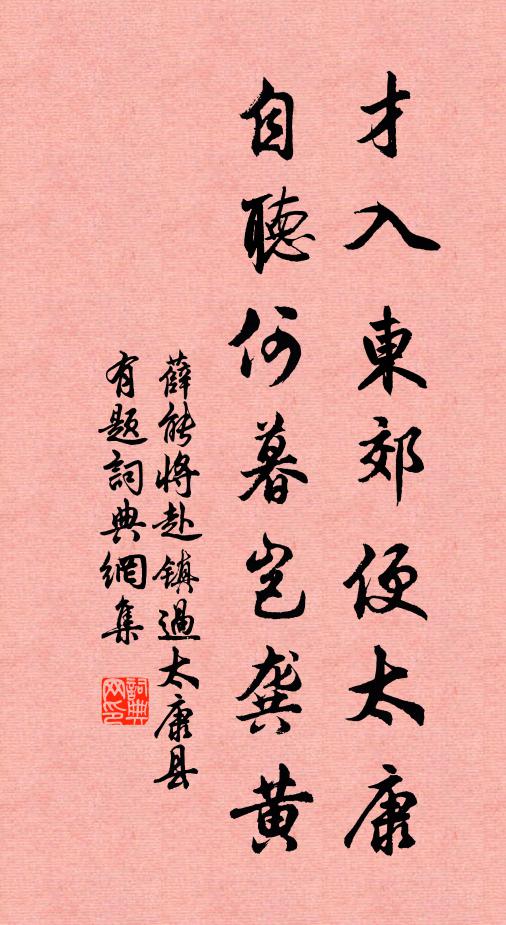 才入東郊便太康
自聽何暮岂龔黄
薛能将赴鎮過太康县
有題詞典網集
詞典网印